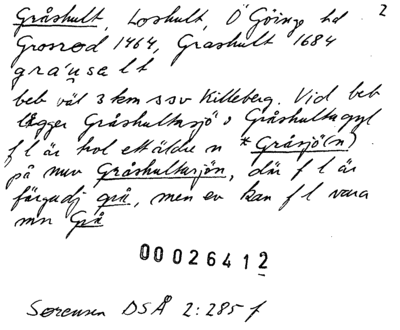 Gråshult, Loshult, Ö Göinge hd 2
Grosrod 1464, Grashult 1684
grau̇selt
beb väl 3 km ssv Killeberg. Vid beb
ligger Gråshultasjö o Gråshultagyl
f l är hol ett äldre n *Gråsjö(n)
på nuv Gråshultasjön, där f l är
färgadj grå, men ev kan f l vara
mn Grå
00026412
Sørensen DSÅ 2:285 f